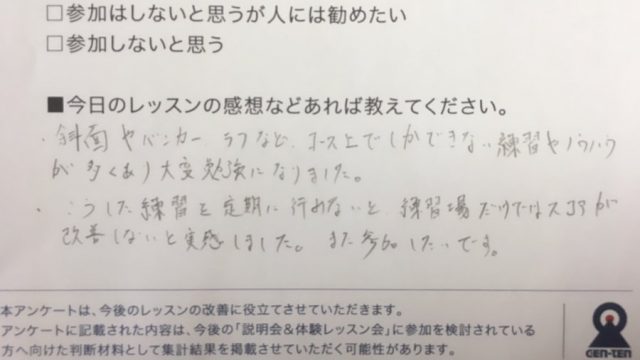 □参加はしないと思うが人には勧めたい
□参加しないと思う
■今日のレッスンの感想などあれば教えてください。
・斜面やバンカー、ラフなど、コース上でしかできない練習やノウハウ
が多くあり大変勉強になりました。
・こうした練習を定期に行めないと、練習場だけではスコアが
改善しないと実感しました。また参加したいです。
本アンケートは、今後のレッスンの改善に役立てさせていただきます。
アンケートに記載された内容は、今後の「説明会&体験レッスン会」に参加を検討されている
方へ向けた判断材料として集計結果を掲載させていただく可能性があります。
CEN-TEN